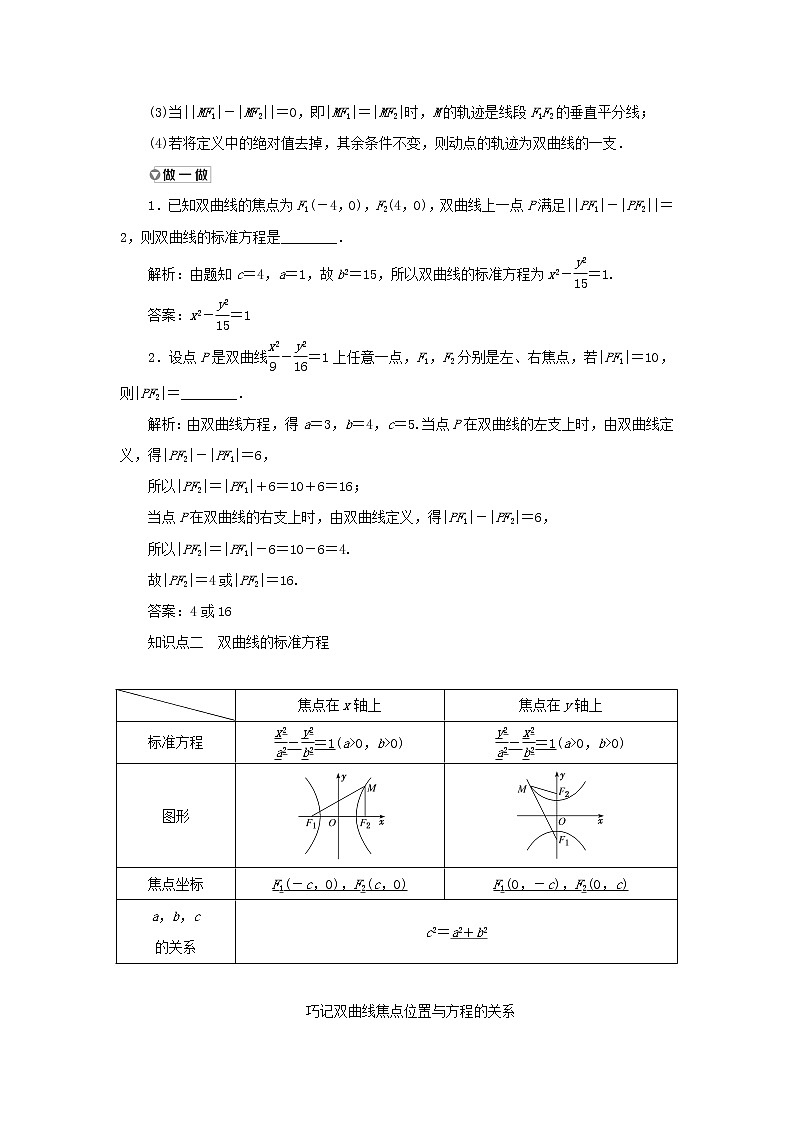 (3)当||MF₁|－|MF₂||＝0，即|MF₁|＝|MF₂|时，M的轨迹是线段F₁F₂的垂直平分线；
(4)若将定义中的绝对值去掉，其余条件不变，则动点的轨迹为双曲线的一支．
做一做
1．已知双曲线的焦点为F₁(－4,0)，F₂(4,0)，双曲线上一点P满足||PF₁|－|PF₂||＝
2，则双曲线的标准方程是________．
解析：由题知c＝4，a＝1，故b²＝15，所以双曲线的标准方程为x²－y²/15＝1.
答案：x²－y²/15＝1
2．设点P是双曲线x²/9－y²/16＝1上任意一点，F₁，F₂分别是左、右焦点，若|PF₁|＝10，
则|PF₂|＝________．
解析：由双曲线方程，得a＝3，b＝4，c＝5.当点P在双曲线的左支上时，由双曲线定
义，得|PF₂|－|PF₁|＝6，
所以|PF₂|＝|PF₁|＋6＝10＋6＝16；
当点P在双曲线的右支上时，由双曲线定义，得|PF₁|－|PF₂|＝6，
所以|PF₂|＝|PF₁|－6＝10－6＝4.
故|PF₂|＝4或|PF₂|＝16.
答案：4或16
知识点二　双曲线的标准方程
焦点在x轴上　焦点在y轴上
标准方程　x²/a²－y²/b²＝1(a>0，b>0)　y²/a²－x²/b²＝1(a>0，b>0)
图形　y M F₁ O F₂ x　y M F₂ O x F₁
焦点坐标　F₁(－c，0)，F₂(c，0)　F₁(0，－c)，F₂(0，c)
a，b，c
的关系　c²＝a²＋b²
巧记双曲线焦点位置与方程的关系